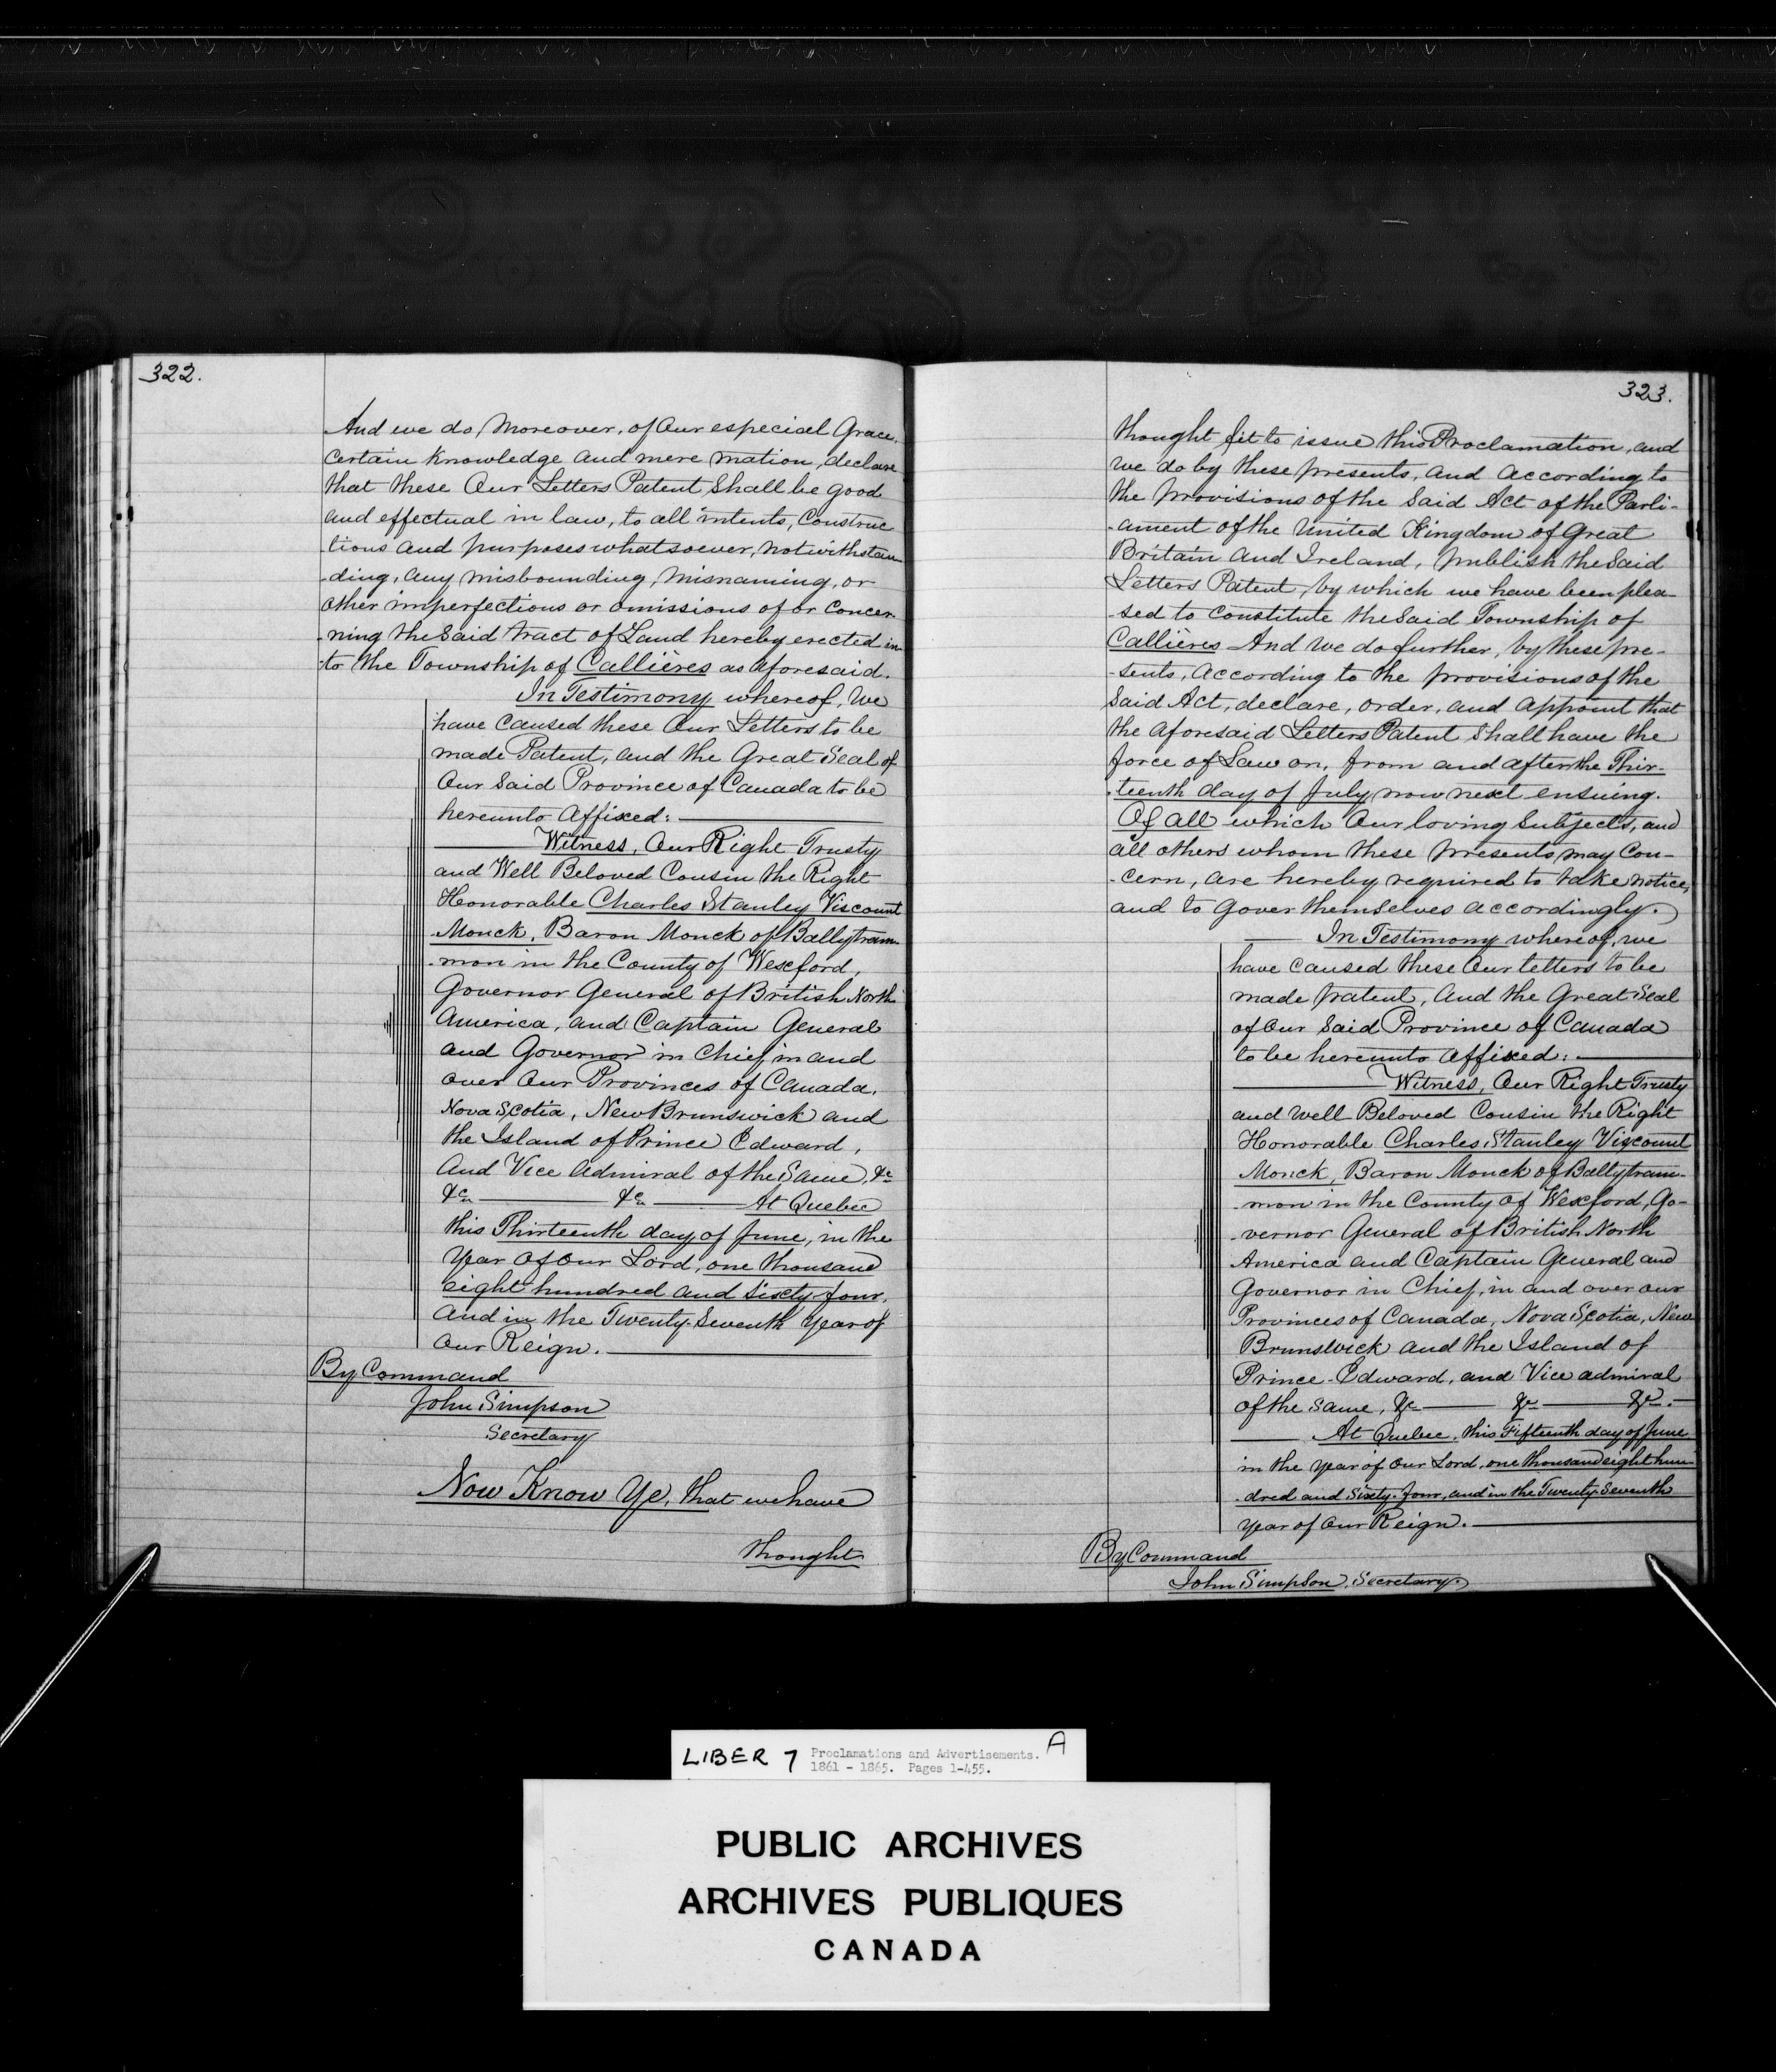 322.
And we do, Moreover, of Our especial Grace,
Certain Knowledge and mere mation, declare
that these Our Letters Patent shall be good
and effectual in law, to all intents, Construc
-tions and purposes whatsoever, notwithstan
-ding, any misbounding, misnaming, or
other imperfections or omissions of or Concer-
-ning the Said tract of Land hereby erected in-
-to the Township of Callières as aforesaid.
In Testimony whereof, We
have Caused these Our Letters to be
made Patent, and the Great Seal of
Our Said Province of Canada to be
hereunto Affixed:
Witness, Our Right Trusty
and Well Beloved Cousin the Right
Honorable Charles Stanley Viscount
Monck, Baron Monck of Ballytram-
-mon in the County of Wexford,
Governor General of British North
America, and Captain General
and Governor in Chief, in and
over Our Provinces of Canada,
Nova Scotia, New Brunswick and
the Island of Prince Edward,
And Vice Admiral of the Same, &c
&c &c At Quebec
this Thirteenth day of June, in the
Year Of Our Lord, one thousand
eight hundred and Sixty-four,
and in the Twenty-Seventh Year of
Our Reign.
By Command
John Simpson
Secretary
Now Know Ye, that we have
thought
323.
thought fit to issue this Proclamation, and
we do by these presents, and according to
the provisions of the Said Act of the Parli-
-ament of the United Kingdom of Great
Britain and Ireland, publish the Said
Letters Patent, by which we have been plea-
-sed to Constitute the Said Township of
Callières And We do further, by these pre-
-sents, according to the provisions of the
Said Act, declare, order, and appoint that
the aforesaid Letters Patent Shall have the
force of Law on, from and after the Thir-
-teenth day of July now next ensuing.
Of all which Our loving Subjects, and
all others whom these presents may Con-
-cern, are hereby required to take notice,
and to gover themselves accordingly.
In Testimony whereof, we
have caused these Our letters to be
made patent, and the Great Seal
of Our Said Province of Canada
to be hereunto affixed:
Witness, Our Right Trusty
and Well Beloved Cousin the Right
Honorable Charles Stanley Viscount
Monck, Baron Monck of Ballytram-
-mon in the County of Wexford, Go-
-vernor General of British North
America and Captain General and
Governor in Chief, in and over our
Provinces of Canada, Nova Scotia, New
Brunswick and the Island of
Prince-Edward, and Vice admiral
of the Same, &c &c &c.
At Quebec, this Fifteenth day of June
in the year of Our Lord, one thousand eight hun
-dred and Sixty-four, and in the Twenty-Seventh
Year of Our Reign.
By Command
John Simpson, Secretary.
LIBER 7 Proclamations and Advertisements. A
1861 - 1865. Pages 1-455.
PUBLIC ARCHIVES
ARCHIVES PUBLIQUES
CANADA